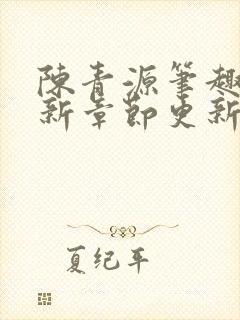 陳青源筆趣
新章節更新
夏纪年